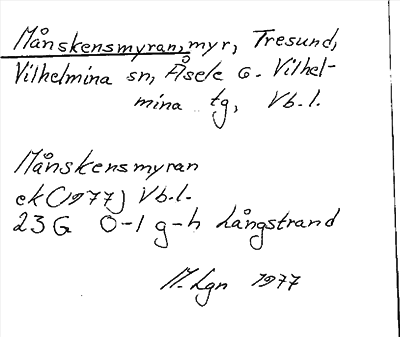 Månskensmyran, myr, Tresund,
Vilhelmina sn, Åsele o. Vilhel-
mina tg, Vb.l.
Månskensmyran
ek (1977) Vb.l.
23G 0-1 g-h Långstrand
M. Lgn 1977